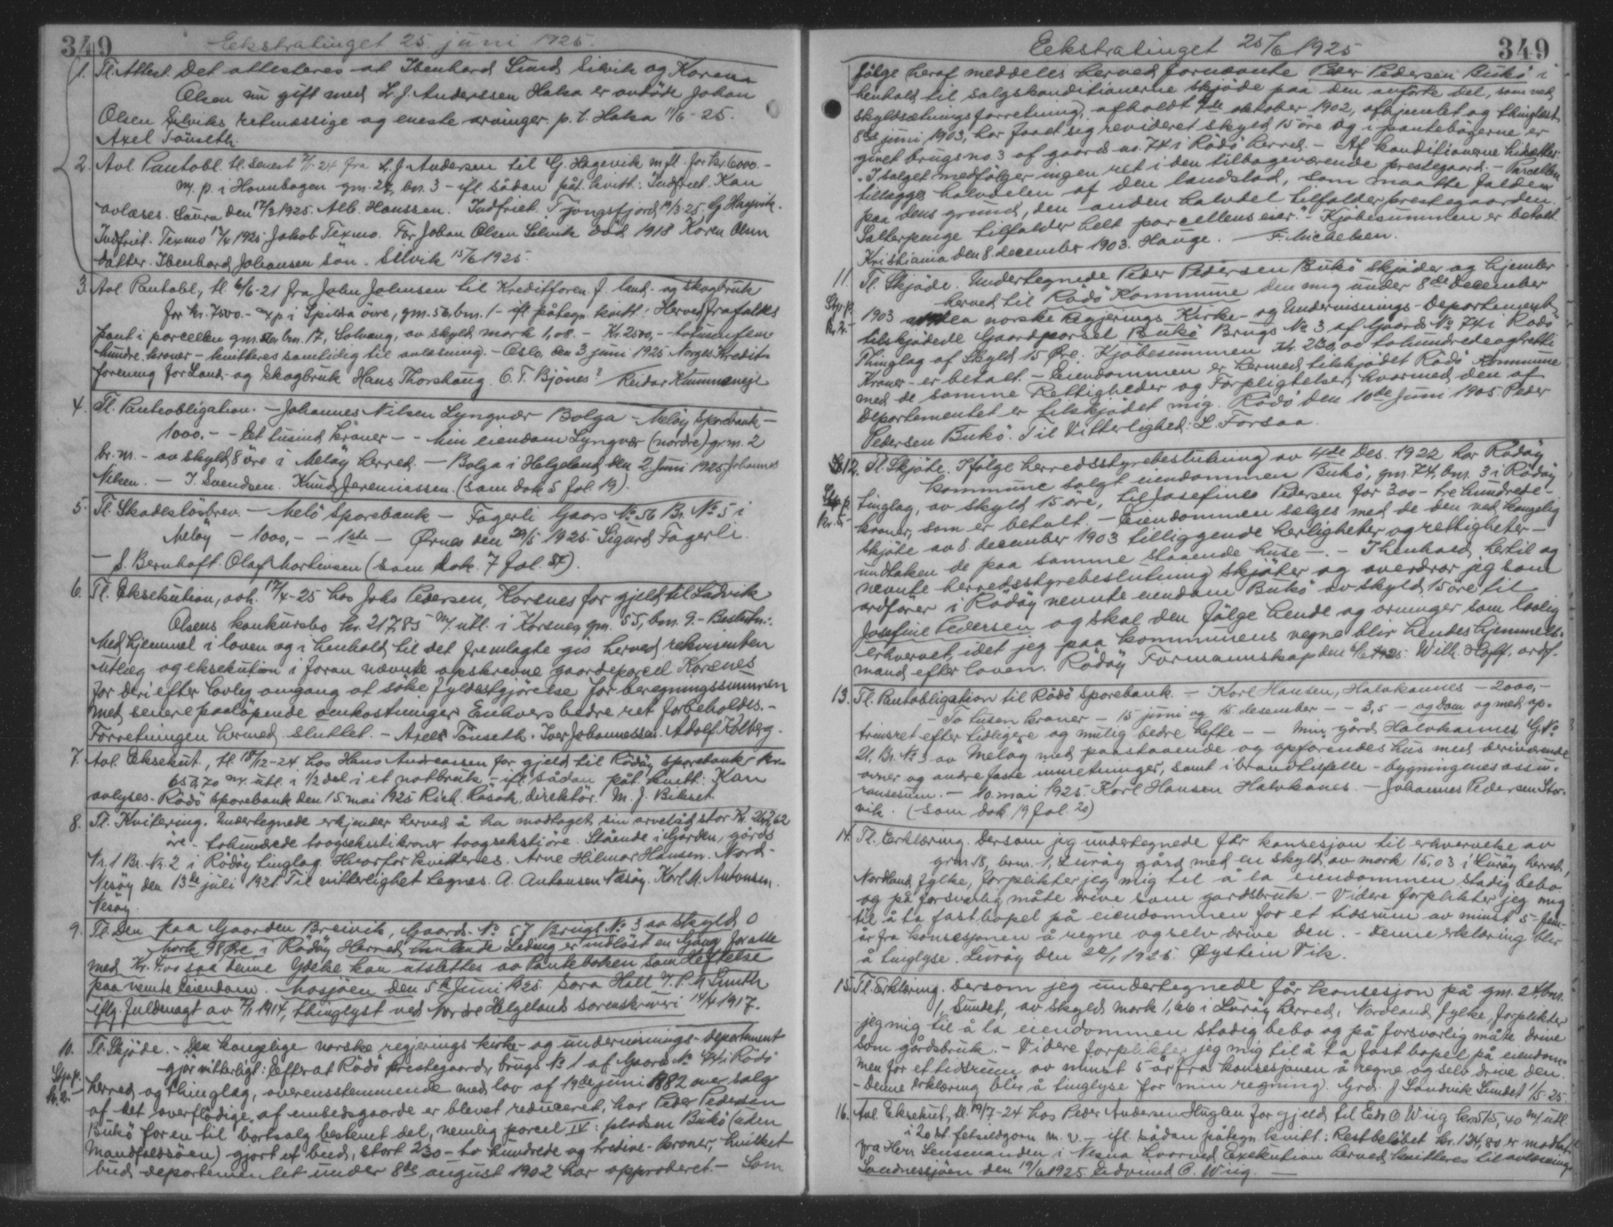 349 Ekstratinget 25 juni 1925.
1. Tl. Attest. Det attesteres at Ibenhard Lund Selvik og Korena
Olsen nu gift med L. J. Anderssen Halsa er avdøde Johan
Olsen Selviks retmæssige og eneste arvinger. p. t. Halsa 11/6-25.
Axel Tønseth
2. Avl. Pantobl. tl. senest 24 fra L. J. Andersen til G. Hagevik m. fl. for kr. 6000.-
m. p. i Havnbogen gm. 27, bn. 3 - ifl. sådan påt. kvitt: Indfriet. Kan
avlæses. Saura den 17/3 1925. Alb. Hanssen. Indfriet. Tjongsfjord 19/3 25. G. Hagevik.
Indfriet. Texmo 17/4 1925 Jakob Texmo. For Johan Olsen Selvik død 1918 Koren Olsen
datter. Ibenhard Johansen søn. Selvik 15/6 1925.
3. Avl. Pantobl., tl. 6/6-21 fra John Johnsen til Kreditforen. f. land- og skogbruk
for kr. 7500.- m/p i Spilda øvre, gm. 56, bn. 1 - ifl. påtegn. kvitt: Herved frafaldes
pant i parcellen gm. bn. 17, Solvang, av skyld mark 1,08. - Kr. 2500,- - totusenfem
hundre kroner - kvitteres samtidig til avlæsning. - Oslo, den 3 juni 1925 Norges Kredit-
forening for Land- og Skogbruk Hans Thorshaug. C. F. Bjønes? Reidar Kummeneje
4. Tl. Panteobligation. - Johannes Nilsen Lyngvær Bolga - Meløy Sparebank -
1000.- - Et tusind kroner - - min eiendom Lyngvær (nordre) gr. m. 2
br. m. - av skyld 8 øre i Meløy herred. - Bolga i Helgeland den 2 juni 1925 Johannes
Nilsen. - I. Svendsen. Knud Jeremiassen. (som dok 5 fol 19).
5. Tl. Skadesløsbrev - Melø Sparebank - Fagerli Gaars No. 56 Br. No. 5 i
Meløy - 1000,- - 1ste - Ørnes den 29/5 1925. Sigurd Fagerli.
- S. Bernhoft. Olaf Martinsen (som dok. 7 fol. 55).
6. Tl. Eksekution, avh. 17/4-25 hos Johs Pedersen, Korsnes for gjeld til Ludvik
Olsens konkursbo kr. 217,85 m/ utl. i Korsnes gm. 55, bn. 9. - Beslutn.:
Med hjemmel i loven og i henhold til det fremlagte gis herved rekvirenten
utlæg og eksekution i foran nævnte opskrevne gaardeparcel Korsnes
for deri efter lovlig omgang at søke fyldestgjørelse for beregningssummen
med senere paaløpende omkostninger. Enhvers bedre ret forbeholdes. -
Forretningen hermed sluttet. - Axel Tønseth. Iver Johannessen. Adolf Kolberg.
7. Avl. Eksekut., tl. 18/12-24 hos Hans Andreassen for gjeld til Rødøy sparebank kr.
65 å 70 m. utl. i 1/2 del i et notbruk - ifl. sådan påt. kvitt: Kan
avlyses. Rødø sparebank den 15. mai 1925 Rich. Råsok, direktør. M. J. Bikset
8. Tl. Kvitering. Undertegnede erkjender herved å ha modtaget sin arvelåd stor kr. 262,62
øre. - tohundrede toogseksti kroner toogsekstiøre. Stående i Gården, gårds
Nr. 1 Br. Nr. 2 i Rødøy tinglag. Hvorfor kvitteres. Arne Hilmar Hansen. Nord-
Nesøy den 13de juli 1921 Til vitterlighet tegnes. A. Antonsen Nesøy. Karl M. Antonsen.
Nesøy.
9. Tl. Den paa Gaarden Breivik, Gaards No. 57 Brugs No. 3 av skyld 0
Mark 98 øre i Rødøy Herred heftende Leding er indløst en Gang for alle
med Kr. 4,00 saa denne Ydelse kan utslettes av Panteboken som Heftelse
paa nemte Eiendom. Mosjøen den 5te Juni 1925. Sora Hall P. M. Smith
iflg. fuldmagt av 7/1 1914, thinglyst ved Nordre Helgelands sorenskriveri 14/4 1917.
10. Tl. Skjøde. - Den kongelige norske regjerings kirke- og undervisnings-departement
gjør vitterligt: Efterat Rødø Prestegaards, brugs No 1 af gaards No. 74 i Rødø
herred og thinglag, overensstemmende med lov af 14de juni 1882 over salg
af det overflødige af embedsgaarde er blevet reduceret, har Peder Pedersen
Bukø for en til bortsalg bestemt del, nemlig parcel IV: pladsen Bukø (uden
Mandfaldsøen) gjort et bud, stort 230 - to hundrede og tredive - kroner, hvilket
bud departementet under 8de august 1902 har approberet. - Som
Ekstratinget 25/6 1925 349
følge heraf meddeles herved fornævnte Peder Pedersen Bukø i
henhold til salgskonditionerne skjøde paa den anførte del, som ved
skyldsætningsforretning, afholdt 4de oktober 1902, afhjemlet og thinglæst
8de juni 1903, har faaet sig revideret skyld 15 øre og i pantebøgerne er
givet brugsno. 3 af gaards no. 74 i Rødø herred. - Af konditionerne hidsættes
"I salget medfølger ingen ret i den tilbageværende prestegaard. - Parcellen
tillægges halvdelen af den landslod, som maatte falde
paa dens grund, den anden halvdel tilfalder prestegaarden.
Salterpenge tilfalder helt parcellens eier." Kjøbesummen er betalt.
Kristiania den 8 december 1903. Hauge. - F. Michelsen.
11. Tl. Skjøde. Undertegnede Peder Pedersen Bukø skjøder og hjemler
herved til Rødø Kommune den mig under 8de December
1903 av den norske Regjerings Kirke- og Undervisnings-Departement
tilskjødede Gaardparsel Bukø Brugs No 3 af Gaards No 74 i Rødø
Thinglag af Skyld 15 Øre. Kjøbesummen kr. 230,00 tohundredeogtretti
Kroner - er betalt. - Eiendommen er hermed tilskjødet Rødø Kommune
med de samme Rettigheder og Forpligtelser, hvormed den af
Departementet er tilskjødet mig. Rødø den 10de Juni 1905. Peder
Pedersen Bukø. Til Vitterlighed: L. Forsaa.
12. Tl. Skjøte. Ifølge herredsstyrebeslutning av 4de Des. 1922 har Rødøy
kommune solgt eiendommen Bukø, gm. 74, bn. 3 i Rødøy
tinglag, av skyld 15 øre, til Josefine Pedersen for 300 - tre hundrede -
kroner, som er betalt. - Eiendommen sælges med de den ved Kongelig
skjøte av 8. december 1903 tilliggende herligheter og rettigheter -
undtaken de paa samme staaende huse -. - I henhold hertil og
nevnte herredsstyrebeslutning skjøter og overdrar jeg som
ordfører i Rødøy nevnte eiendom Bukø av skyld 15 øre til
Josefine Pedersen og skal den følge hende og arvinger som lovlig
erhvervet, idet jeg paa kommunens vegne blir hendes hjemmels-
mand efter loven. Rødøy Formannskap den 6/6 1925. Wilh. Hoff, ordf.
13. Tl. Pantobligation til Rødø Sparebank. - Karl Hansen, Halvkannes - 2000,-
- To tusen kroner - 15 juni og 15 desember - - 3,5 - og dom og med op-
trinsret efter tidligere og mulig bedre hefte - - Min gård Halvkannes G. No.
21, Br. No. 3 av Meløy med paastaaende og opførendes hus med derværende
ovner og andre faste innretninger, samt i brandtilfælle - bygningenes assu-
ransesum. - 10. mai 1925 - Karl Hansen Halvkanes. - Johannes Pedersen Stor-
vik. (som dok 19 fol. 20)
14. Tl. Erklæring. Dersom jeg undertegnede får konsesjon til erhvervelse av
grm. 18, brm. 1, Lurøy gård med en skyld av mark 15,03 i Lurøy herred,
Nordland fylke, forplikter jeg mig til å la eiendommen stadig bebo
og på forsvarlig måte drive som gardsbruk. - Videre forplikter jeg mig
til å ta fast bopel på eiendommen for et tidsrum av minst 5 - fem -
år fra konsesjonen å regne og selv drive den. - Denne erklæring blir
å tinglyse. Lurøy den 22/1 1925. Øystein Vik.
15. Tl. Erklæring. Dersom jeg undertegnede får konsesjon på gm. 24, bm.
1, Sundet, av skyld mark 1,66 i Lurøy herred, Nordland fylke, forplikter
jeg mig til å la eiendommen stadig bebo og på forsvarlig måte drive
som gårdsbruk. - Videre forplikter jeg mig til å ta fast bopel på eiendom-
men for et tidsrum av minst 5 år fra konsesjonen å regne og selv drive den.
- Denne erklæring blir å tinglyse for min regning. Grd. J. Sandvik Sundet 1/5-25.
16. Avl. Eksekut., tl. 19/7-24 hos Peder Andersen Huglen for gjeld til Edv. O. Wiig kr. 515,40 m/ utl.
i 20 st. fetsildgarn m. v. - ifl. sådan påtegn. kvitt: Restbeløbet kr. 124,80 er modtat
fra Herr Lensmanden i Nesna hvorved Exekution herved kvitteres til avlæsning.
Sandnessjøen den 19/6 1925 Eidvind O. Wiig.